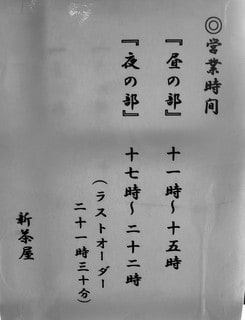 ◎営業時間
『昼の部』 十一時～十五時
『夜の部』 十七時～二十二時
（ラストオーダー
二十一時三十分）
新茶屋